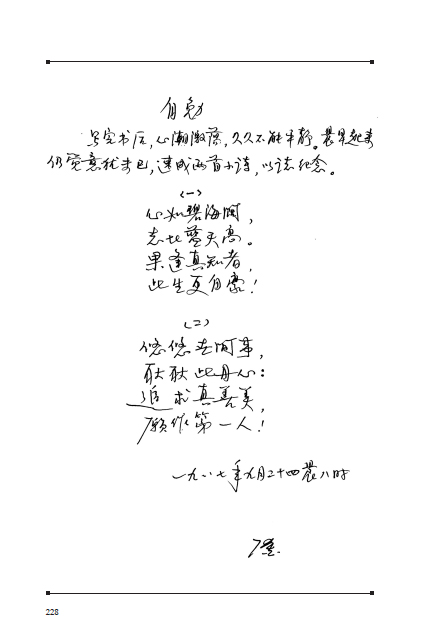 自勉
写完书后，心潮激荡，久久不能平静。晨早起来
仍觉意犹未已，遂成两首小诗，以志纪念。
（一）
心如碧海阔，
志比蓝天高。
果逢真知者，
此生更自豪！
（二）
悠悠世间事，
耿耿此丹心：
追求真善美，
愿作第一人！
一九八七年九月二十四晨八时
228